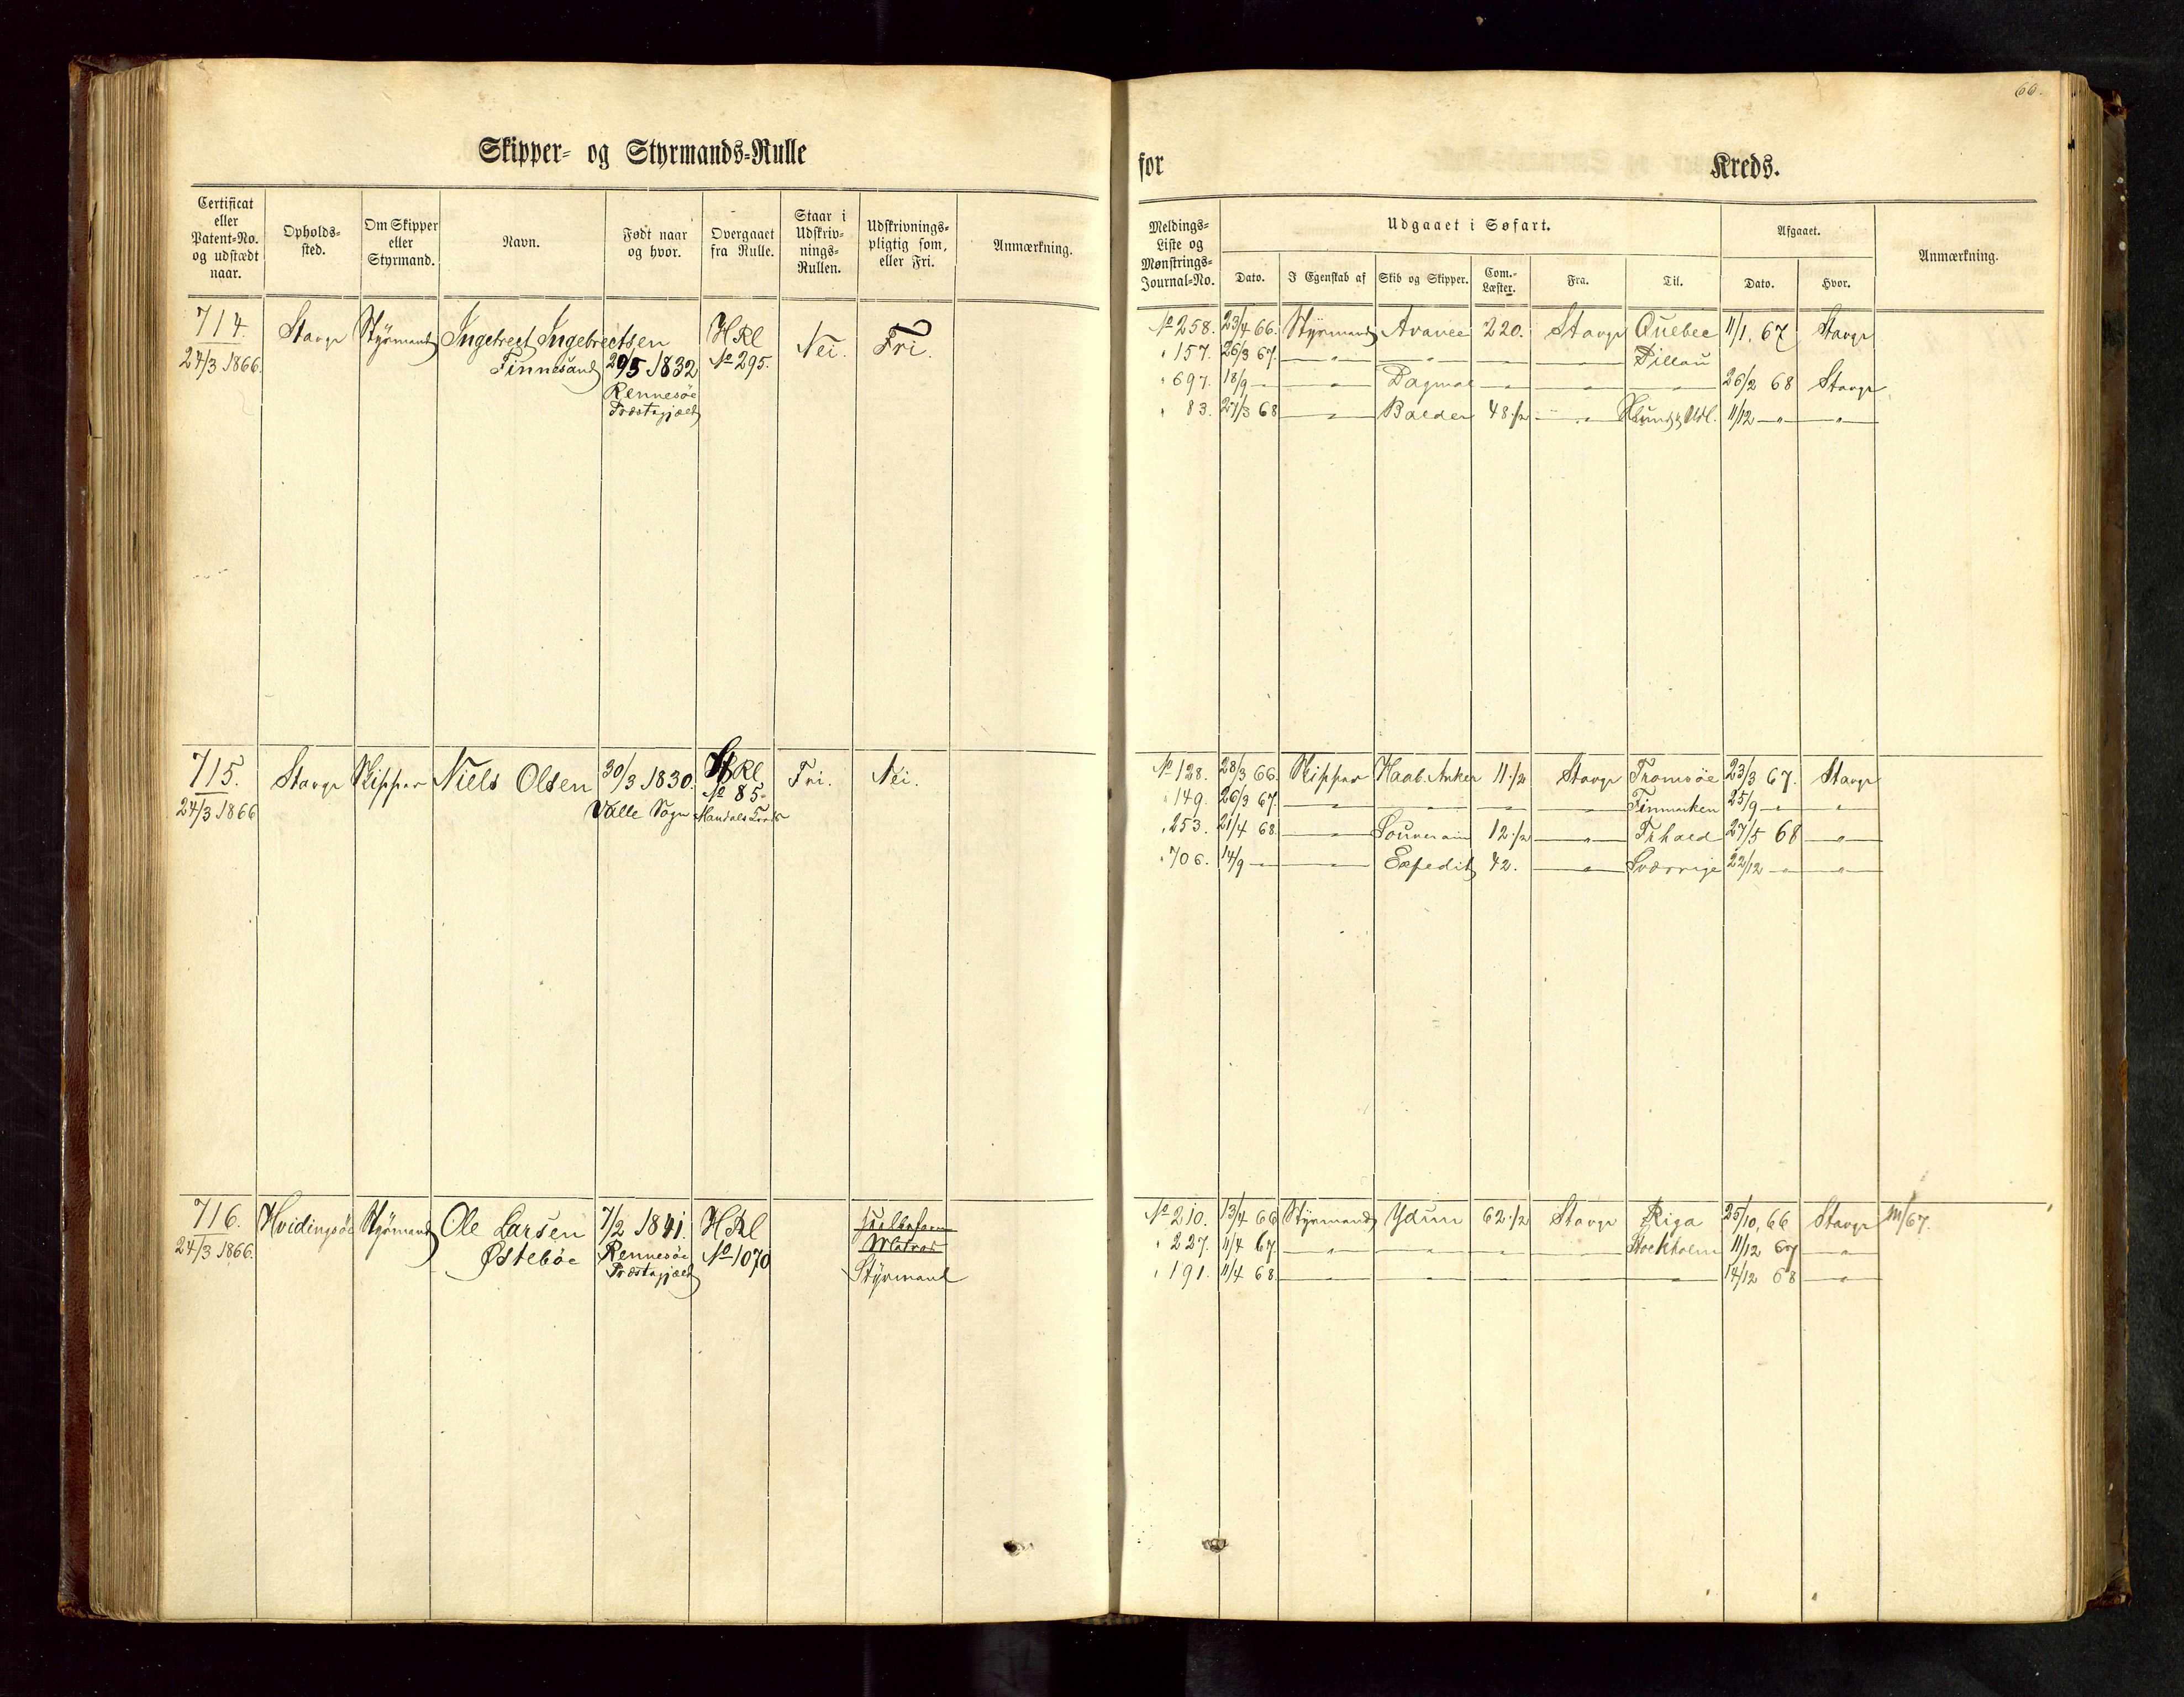 66.
Skipper- og Styrmands-Rulle
for Kreds.
Certificat eller Patent-No. og udstædt naar.
Opholds-sted.
Om Skipper eller Styrmand.
Navn.
Født naar og hvor.
Overgaaet fra Rulle.
Staar i Udskriv-nings-Rullen.
Udskrivnings-pligtig som, eller Fri.
Anmærkning.
Meldings-Liste og Mønstrings-Journal-No.
Udgaaet i Søfart.
Dato.
I Egenskab af
Skib og Skipper.
Com.-Læster.
Fra.
Til.
Afgaaet.
Dato.
Hvor.
Anmærkning.
714. Stavgr Styrmand Ingebrect Ingebrectsen H Rl Nei. Fri.
24/3 1866. Finnesand 29/5 1832 No 295.
Rennesöe
Præstegjæld
No 258. 23/4 66. Styrmand Avance 220. Stavgr Quebec 11/1. 67 Stavgr
" 157. 26/3 67. — " — — " — — — Pillau
" 697. 18/9 — — " — Dagmar — " — — " — — " — 26/2 68 Stavgr
" 83. 27/3 68 — " — Balder 48 1/2 — " — 11/12 — " — — " —
715. Stavgr Skipper Niels Olsen 30/3 1830. Rl Fri. Nei.
24/3 1866 Valle Sogn No 85.
Mandals
No 128. 28/3 66. Skipper Haab. Anker 11 1/2 Stavgr Tromsöe 23/3 67. Stavgr
" 149. 26/3 67. — " — — " — — — Finmarken 25/9 — " — "
" 253. 21/4 68. — " — Souverain 12 1/2 — " — Frhald 27/5 68 — " —
" 706. 14/9 — — " — Expedit 42. — " — Sverrige 22/12 — " — — " —
716. Hvidingsöe Styrmand Ole Larsen 7/2 1841. H Rl
24/3 1866. Östeböe Rennesöe No 1070 Matros
Præstegjæld Styrmand
No 210. 13/4 66 Styrmand Ydun 62 1/2 Stavgr Riga 25/10. 66 Stavgr
" 227. 11/4 67. — " — — " — — " — — Stockholm 11/12 67 — " —
" 191. 11/4 68. — — — — — — 14/12 68 — " —